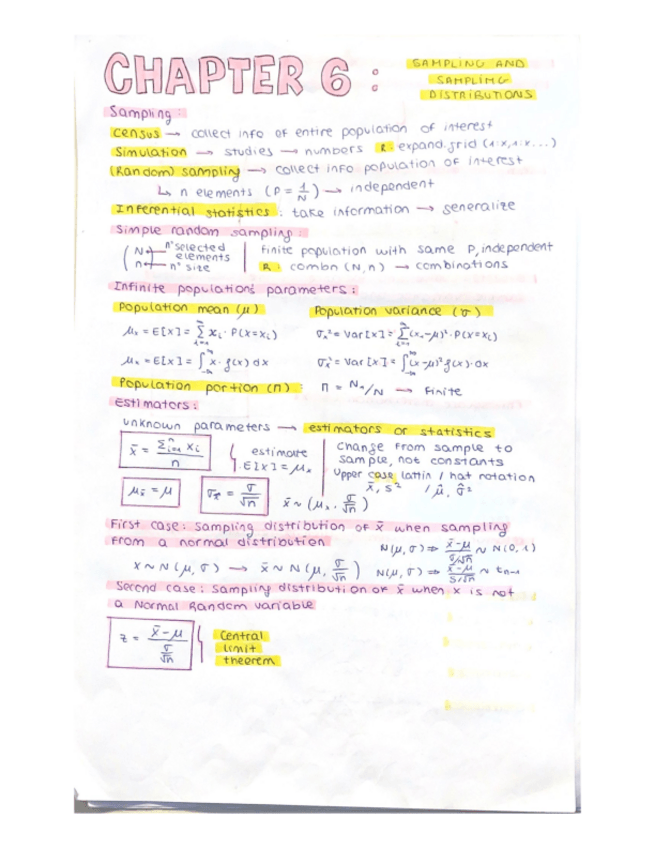 CHAPTER 6 :
SAMPLING AND
SAMPLING
DISTRIBUTIONS
Sampling:
census → collect info of entire population of interest
Simulation → studies → numbers R: expand.grid (1:x,1:x...)
(Random) sampling → collect info population of interest
↳ n elements (P = 1/N) → independent
Inferential statistics: take information → generalize
Simple random sampling:
(N n) nº selected elements nº size
Finite population with same P, independent
R: combn (N,n) → combinations
Infinite populations parameters:
Population mean (μ)
Population variance (σ)
μₓ = E[x] = Σ xᵢ · P(x=xᵢ)
σₓ² = Var[x] = Σ(xᵢ-μ)² · P(x=xᵢ)
μₓ = E[x] = ∫ x · f(x) dx
σₓ² = Var[x] = ∫(x-μ)² f(x) · dx
Population portion (π): π = Nₓ/N → Finite
Estimators:
unknown parameters → estimators or statistics
x̄ = Σⁿᵢ₌₁ xᵢ / n
estimate
E[x] = μₓ
Change from sample to
sample, not constants
Upper case lattin / hat notation
x̄, s² / μ̂, σ̂²
μx̄ = μ
σx̄ = σ/√n
x̄ ~ (μₓ, σ/√n)
First case: sampling distribution of x̄ when sampling
from a normal distribution
N(μ, σ) ⇒ x̄-μ / σ/√n ~ N(0, 1)
x ~ N(μ, σ) → x̄ ~ N(μ, σ/√n)
N(μ, σ) ⇒ x̄-μ / S/√n ~ tn-1
Second case: sampling distribution of x̄ when x is not
a Normal Random variable
z = x̄ - μ / σ/√n
Central
limit
theorem